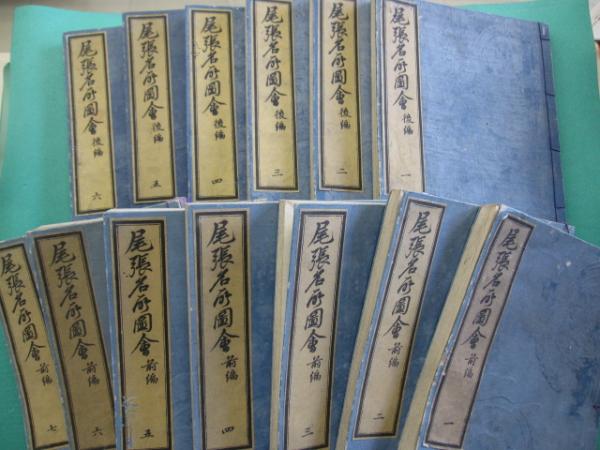 尾張名所圖會 後編 一
尾張名所圖會 後編 二
尾張名所圖會 後編 三
尾張名所圖會 後編 四
尾張名所圖會 後編 五
尾張名所圖會 後編 六
尾張名所圖會 前編 一
尾張名所圖會 前編 二
尾張名所圖會 前編 三
尾張名所圖會 前編 四
尾張名所圖會 前編 五
尾張名所圖會 前編 六
尾張名所圖會 前編 七